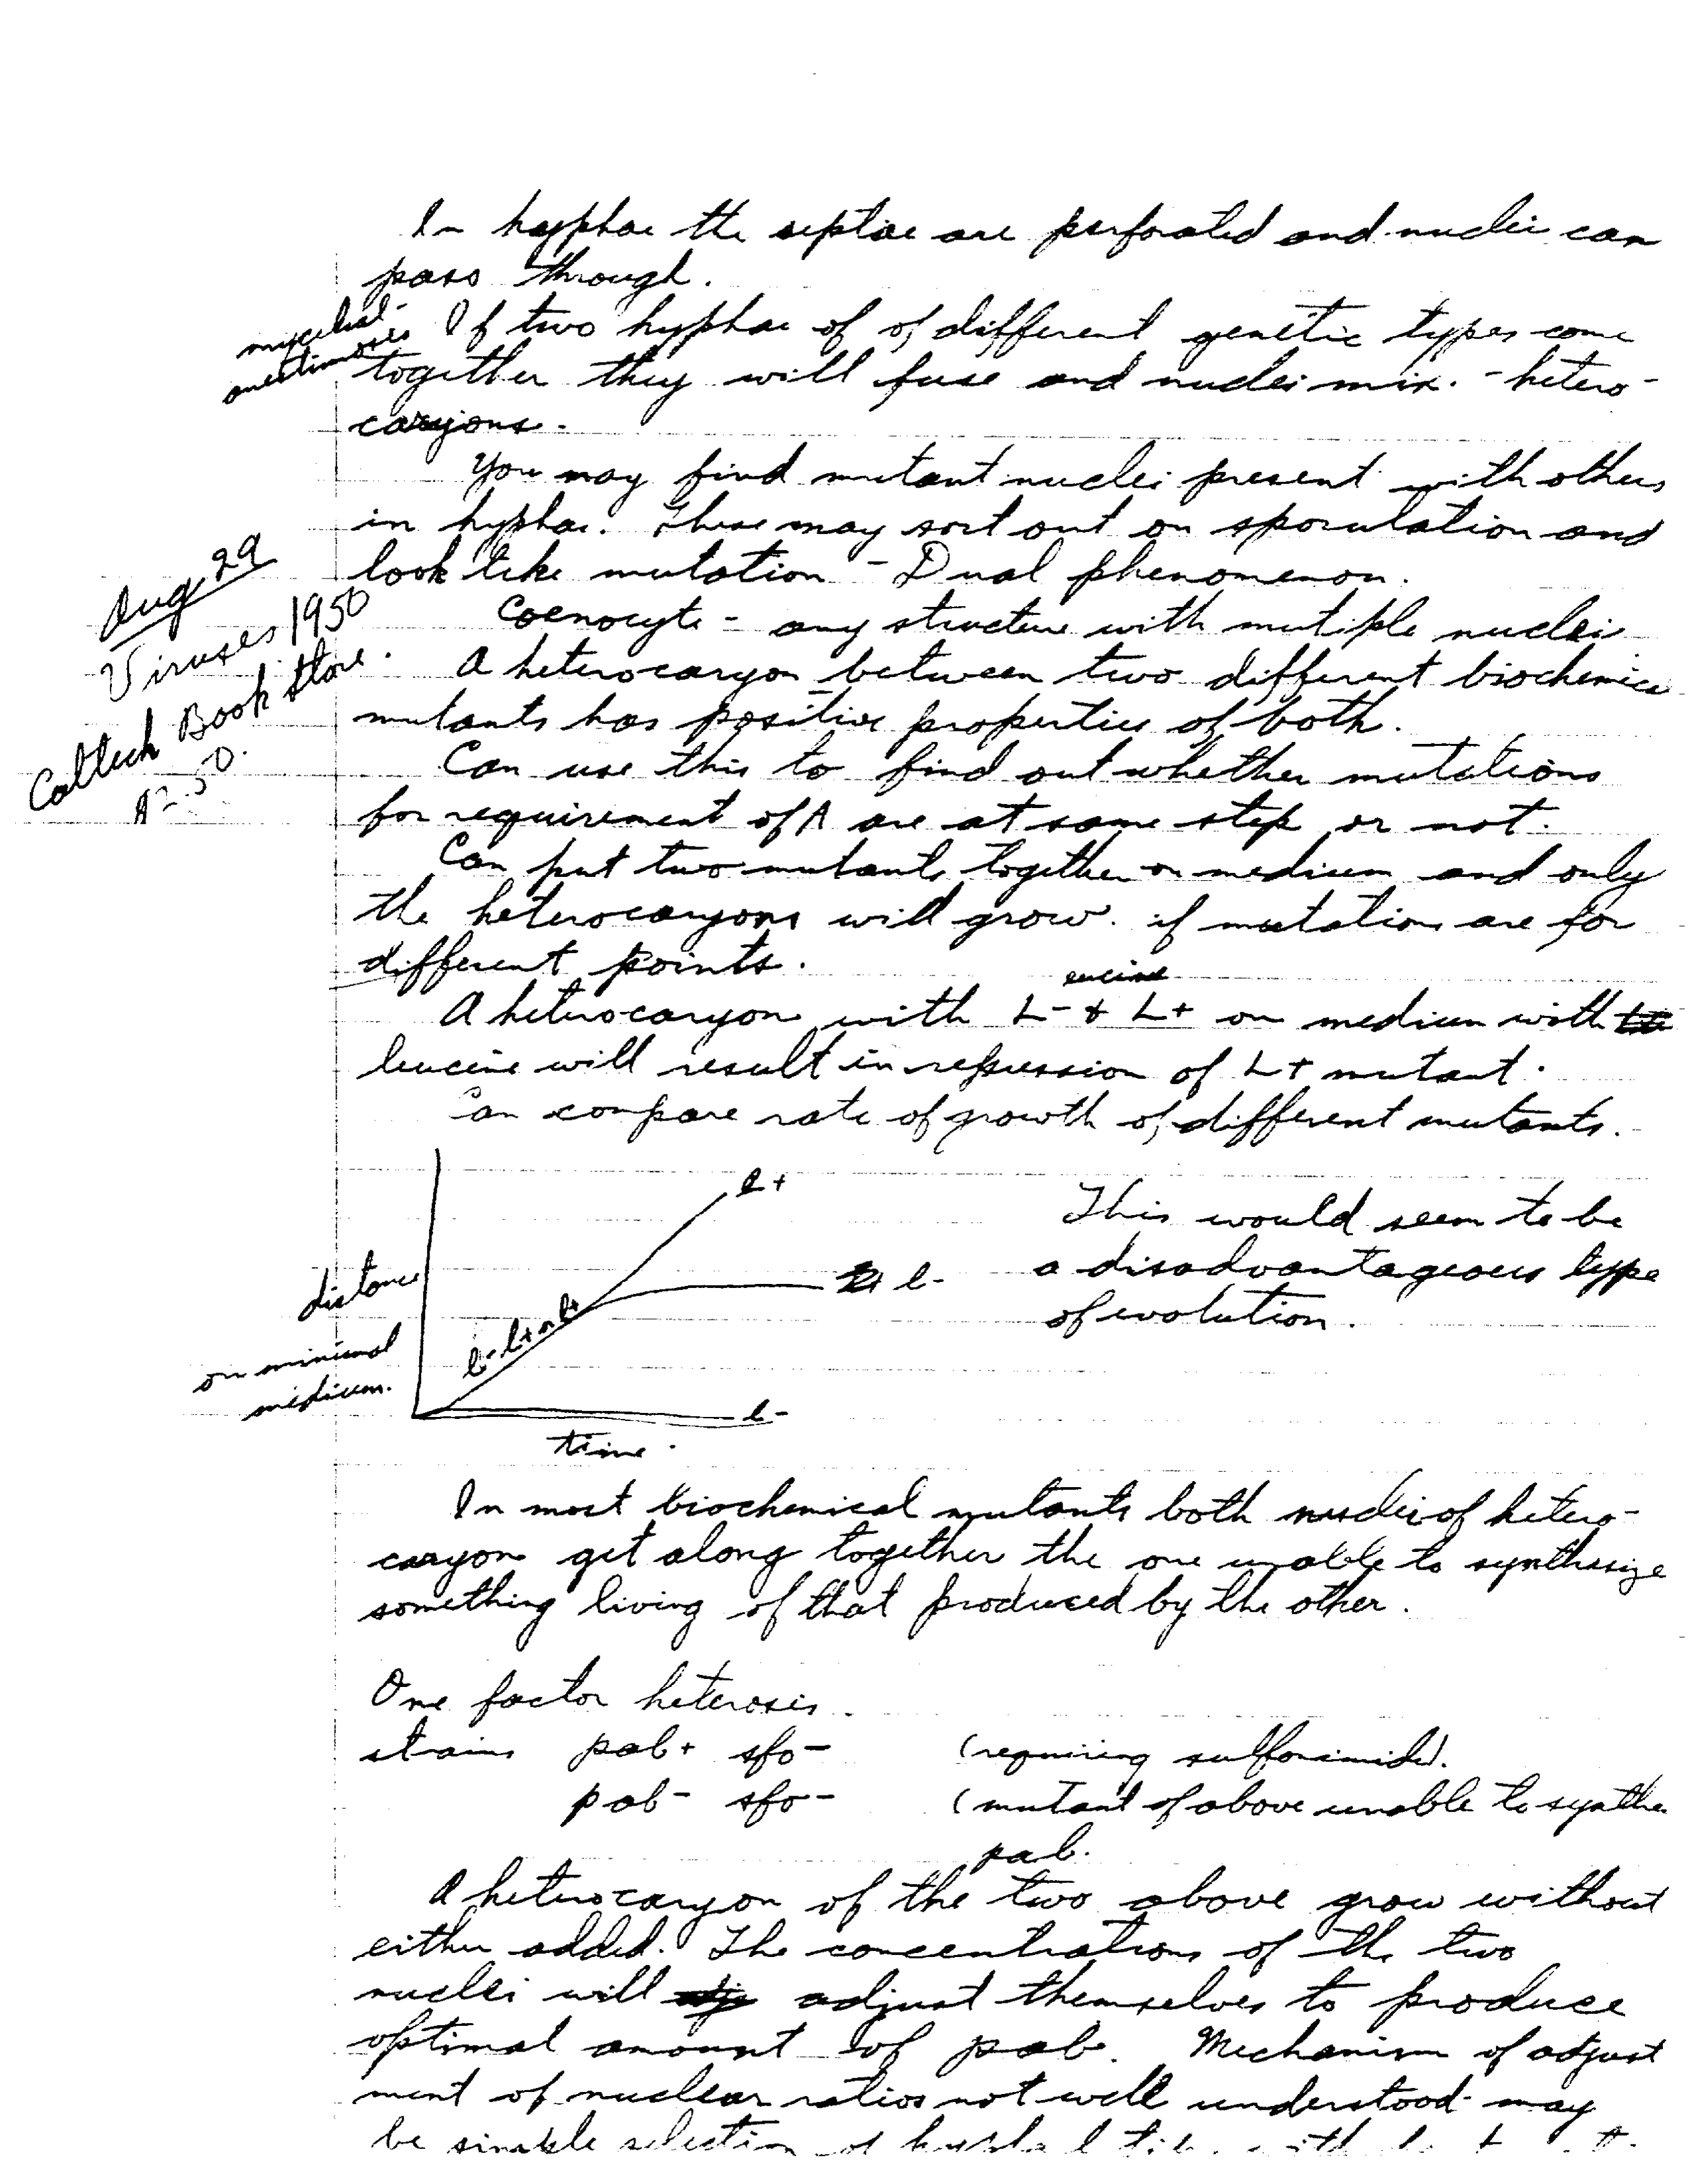 In hyphae the septae are perforated and nuclei can
pass through.
mycelial
If two hyphae of of different genetic types come
together they will fuse and nuclei mix. - hetero-
caryons.
You may find mutant nuclei present with others
in hyphae. These may sort out on sporulation and
look like mutation - Dual phenomenon.
Aug 29
Viruses 1950
Caltech Book Store.
Coenocyte - any structure with mutiple nuclei
A heterocaryon between two different biochemica
mutants has positive properties of both.
Can use this to find out whether mutations
for requirement of A are at same step or not.
Can put two mutants together on medium and only
the heterocaryons will grow. if mutations are for
different points.
A heterocaryon with L- & L+ on medium with
leucine will result in repression of L+ mutant.
Can compare rate of growth of different mutants.
l+
This would seem to be
a disadvantageous type
of evolution.
l-
distance
on minimal
medium.
l-
time.
In most biochemical mutants both nuclei of hetero-
caryon get along together the one unable to synthesize
something living of that produced by the other.
One factor heterosis.
strains pab+ sfo- (requiring sulfonimide).
pab- sfo- (mutant of above unable to synthe
pab.
A heterocaryon of the two above grow without
either added. The concentrations of the two
nuclei will adjust themselves to produce
optimal amount of pab. Mechanism of adjust
ment of nuclear ratios not well understood may
be simple selection of